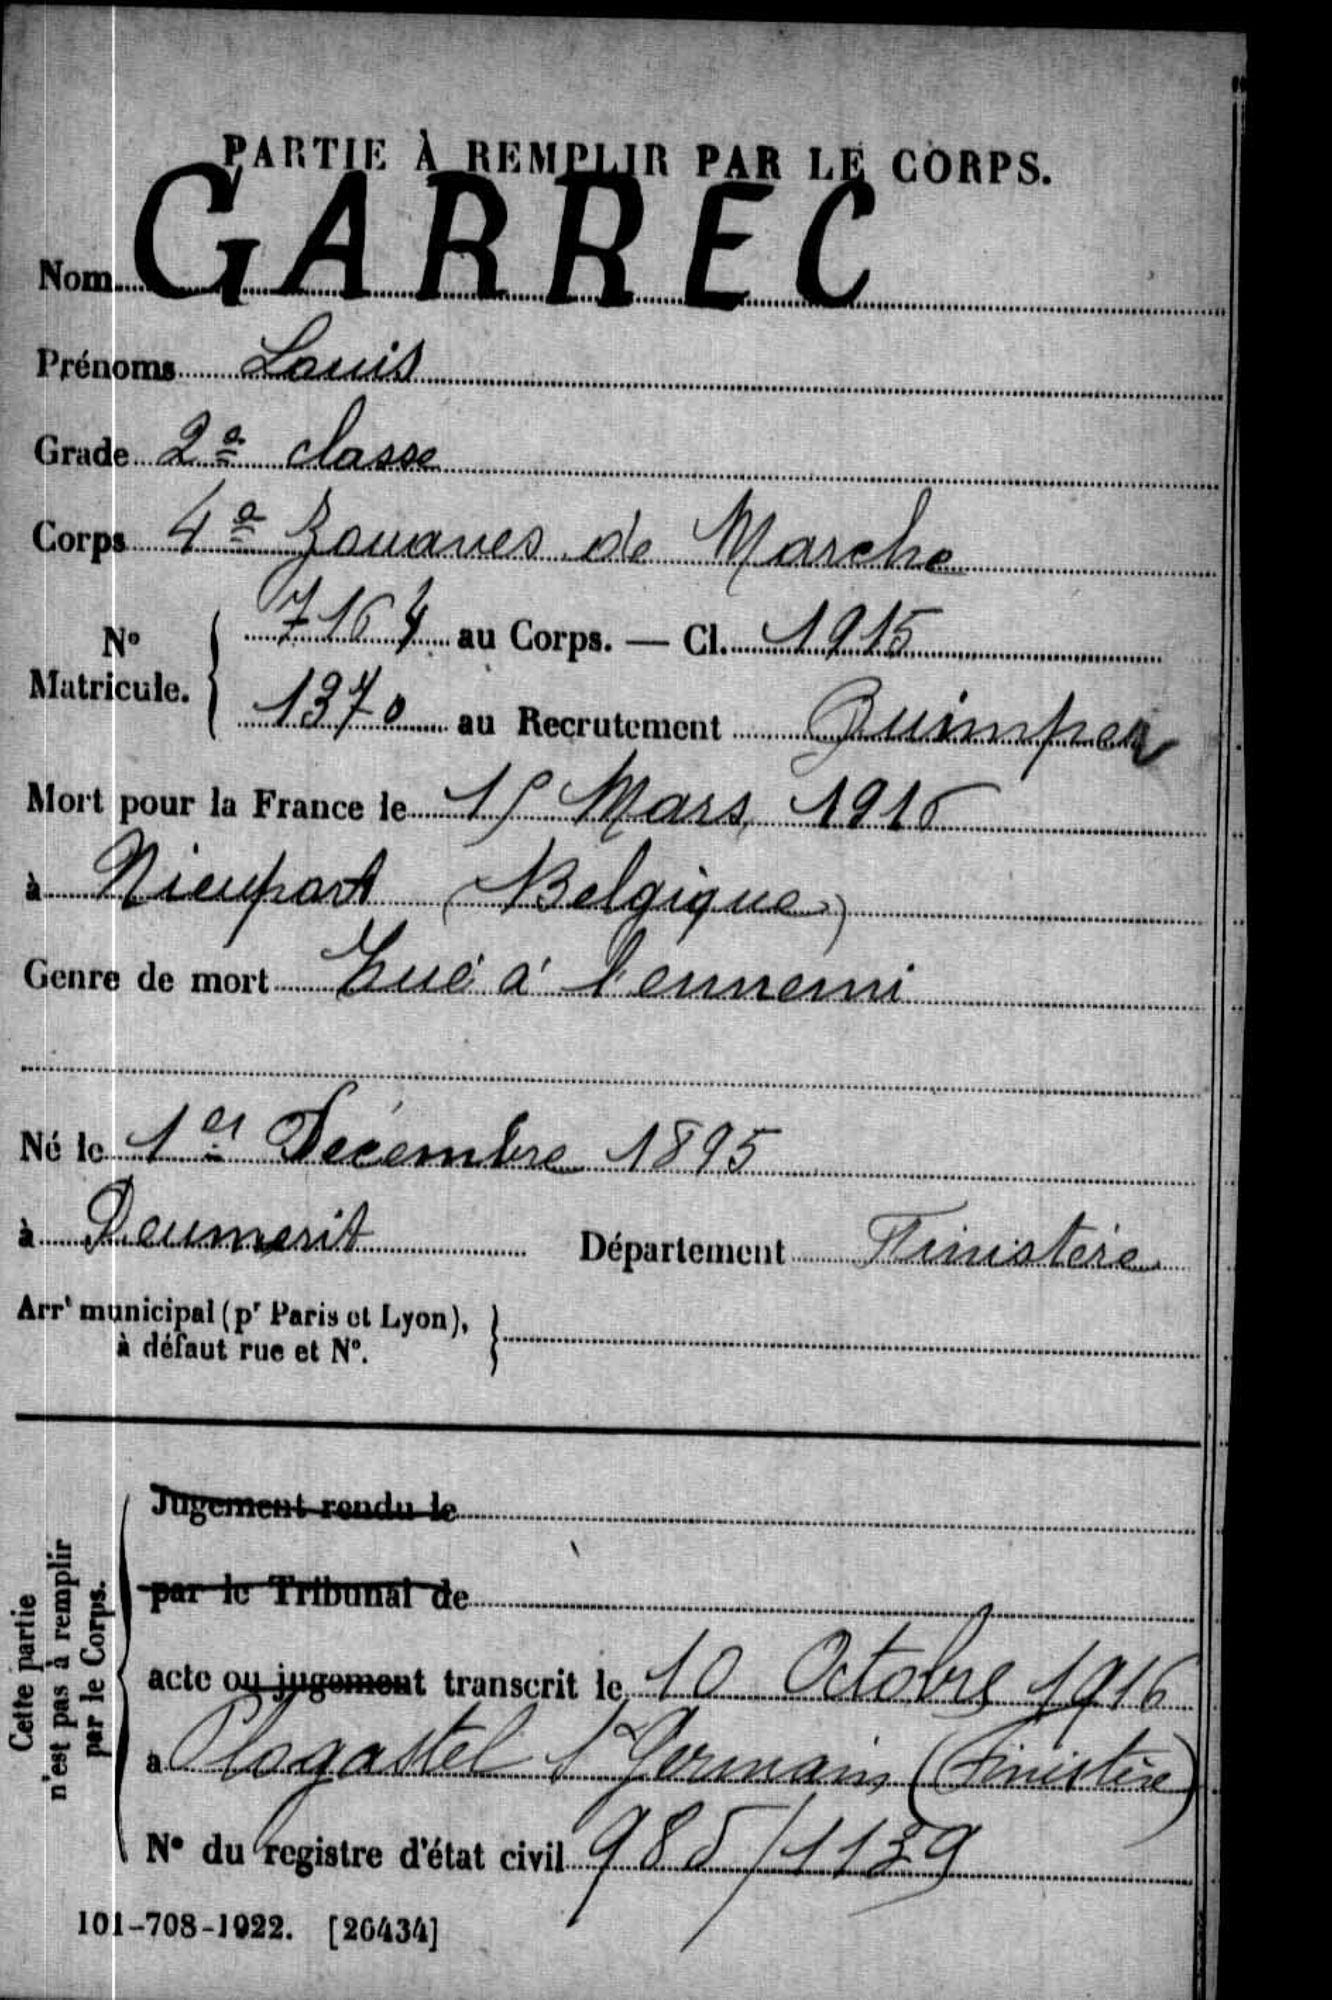 PARTIE À REMPLIR PAR LE CORPS.
Nom GARREC
Prénoms Louis
Grade 2e classe
Corps 4e Zouaves de Marche
N° Matricule. 7164 au Corps. — Cl. 1915
1370 au Recrutement Quimper
Mort pour la France le Mars 1916
à Nieuport (Belgique)
Genre de mort Tué à l'ennemi
Né le 1er Décembre 1895
à Peumerit Département Finistère
Arrt municipal (pr Paris et Lyon),
à défaut rue et N°.
Cette partie
n'est pas à remplir
par le Corps.
Jugement rendu le
par le Tribunal de
acte ou jugement transcrit le 10 Octobre 1916
à Plogastel St Germain (Finistère)
N° du registre d'état civil 985/1139
101-708-1922. [26434]